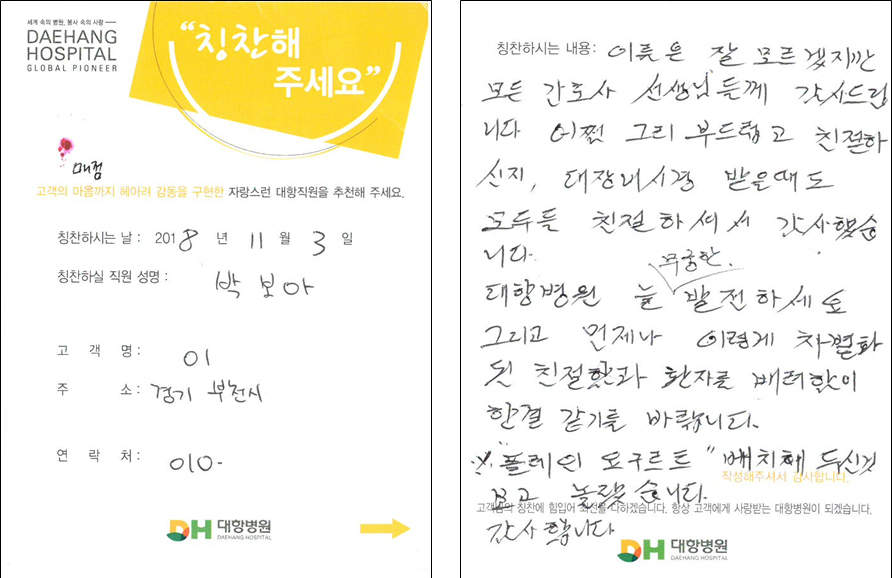 세계 속의 병원, 봉사 속의 사랑
DAEHANG
HOSPITAL
GLOBAL PIONEER
“칭찬해
주세요”
매점
고객의 마음까지 헤아려 감동을 구현한 자랑스런 대항직원을 추천해 주세요.
칭찬하시는 날 : 2018 년 11 월 3 일
칭찬하실 직원 성명 : 박보아
고 객 명 : 이
주 소 : 경기 부천시
연 락 처 : 010-
DH 대항병원
DAEHANG HOSPITAL
칭찬하시는 내용 : 이름은 잘 모르겠지만
모든 간호사 선생님들께 감사드립
니다 어쩜 그리 부드럽고 친절하
신지, 대장내시경 받을때도
모두들 친절하셔서 감사했습
니다. 무궁한.
대항병원 늘 발전하세요
그리고 언제나 이렇게 차별화
된 친절함과 환자를 배려함이
한결 같기를 바랍니다.
※ "플레인 요구르트" 배치해 두신것
작성해주셔서 감사합니다.
보고 놀랐습니다.
고객님의 칭찬에 힘입어 최선을 다하겠습니다. 항상 고객에게 사랑받는 대항병원이 되겠습니다.
감사합니다
DH 대항병원
DAEHANG HOSPITAL